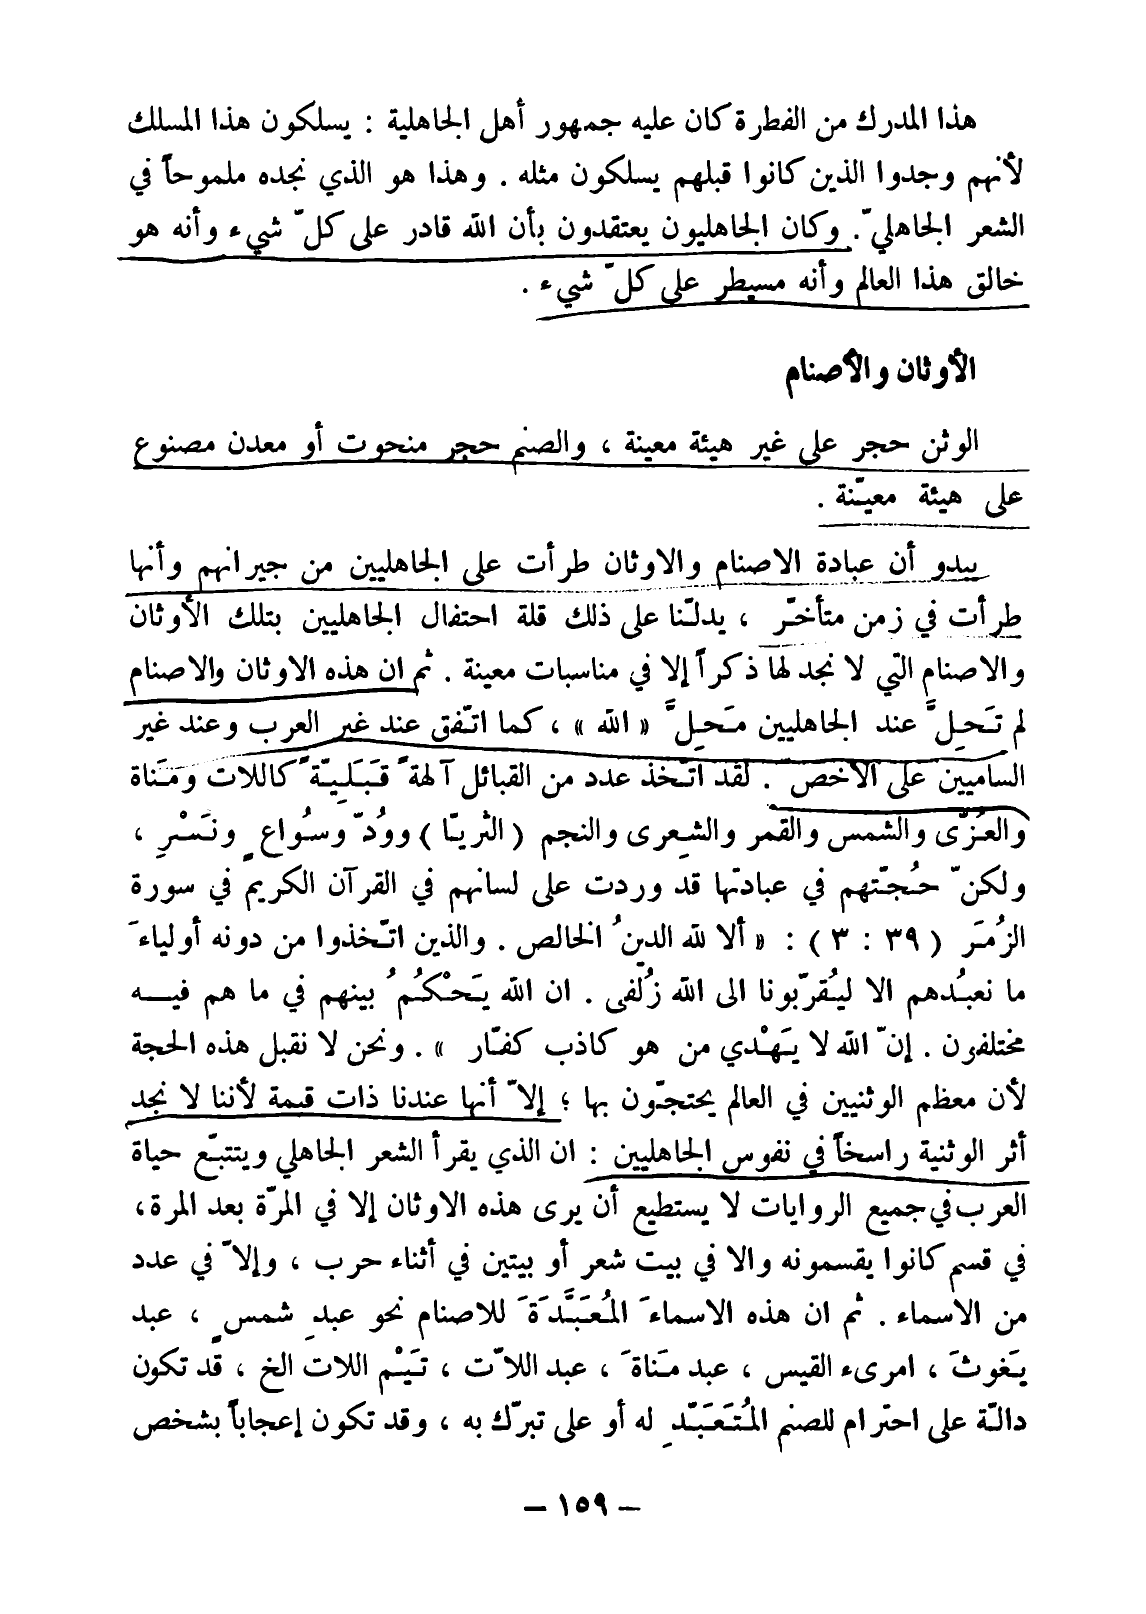 هذا المدرك من الفطرة كان عليه جمهور أهل الجاهلية : يسلكون هذا المسلك
لأنهم وجدوا الذين كانوا قبلهم يسلكون مثله . وهذا هو الذي نجده ملموحاً في
الشعر الجاهليّ . وكان الجاهليون يعتقدون بأن الله قادر على كلّ شيء وأنه هو
خالق هذا العالم وأنه مسيطر على كلّ شيء .
الأوثان والأصنام
الوثن حجر على غير هيئة معينة ، والصنم حجر منحوت أو معدن مصنوع
على هيئة معيّنة .
يبدو أن عبادة الاصنام والاوثان طرأت على الجاهليين من جيرانهم وأنها
طرأت في زمن متأخّر ، يدلّنا على ذلك قلة احتفال الجاهليين بتلك الأوثان
والاصنام التي لا نجد لها ذكراً إلا في مناسبات معينة . ثم ان هذه الاوثان والاصنام
لم تَحِلَّ عند الجاهليين مَحِلَّ « الله » ، كما اتّفق عند غير العرب وعند غير
الساميين على الأخصّ . لقد اتّخذ عدد من القبائل آلهةً قَبَلِيّةً كاللات ومَناة
والعُزّى والشمس والقمر والشِعرى والنجم ( الثريّا ) ووُدّ وسُواعٍ ونَسْرٍ ،
ولكنّ حُجّتهم في عبادتها قد وردت على لسانهم في القرآن الكريم في سورة
الزُمَر ( ٣٩ : ٣ ) : « ألا لله الدينُ الخالص . والذين اتّخذوا من دونه أولياءَ
ما نعبُدهم الا ليُقرّبونا الى الله زُلفى . ان الله يَحْكُمُ بينهم في ما هم فيه
مختلفون . إنّ الله لا يَهْدي من هو كاذب كفّار » . ونحن لا نقبل هذه الحجة
لأن معظم الوثنيين في العالم يحتجّون بها ؛ إلاّ أنها عندنا ذات قيمة لأننا لا نجد
أثر الوثنية راسخاً في نفوس الجاهليين : ان الذي يقرأ الشعر الجاهلي ويتتبّع حياة
العرب في جميع الروايات لا يستطيع أن يرى هذه الاوثان إلا في المرّة بعد المرة ،
في قسم كانوا يقسمونه والا في بيت شعر أو بيتين في أثناء حرب ، وإلاّ في عدد
من الاسماء . ثم ان هذه الاسماءَ المُعَبَّدَةَ للاصنام نحو عبدِ شمسٍ ، عبد
يَغوثَ ، امرىء القيس ، عبد مَناةَ ، عبد اللاّت ، تَيْم اللات الخ ، قد تكون
دالّة على احترام للصنم المُتَعَبّدِ له أو على تبرّك به ، وقد تكون إعجاباً بشخص
– ١٥٩ –